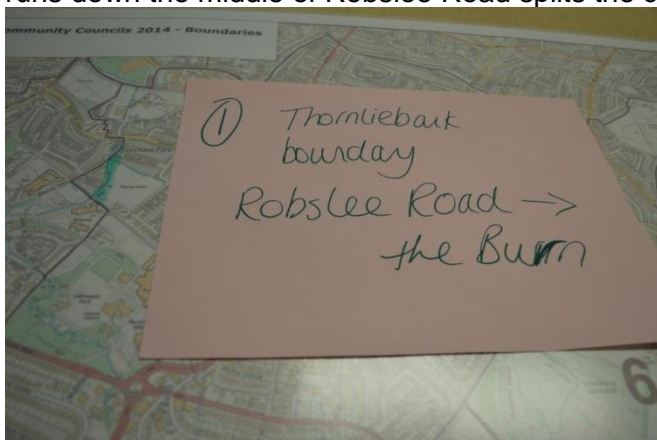 runs down the middle of Robslee Road splits the c
ommunity Councils 2014 - Boundaries
① Thornliebark
bounday
Robslee Road →
the Burn
6